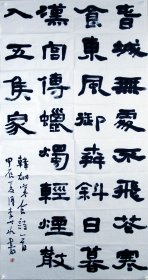 春城無處不飛花寒
食東風御柳斜日暮
漢宮傳蠟燭輕煙散
入五侯家
韓翃寒食詩一首
甲辰夏